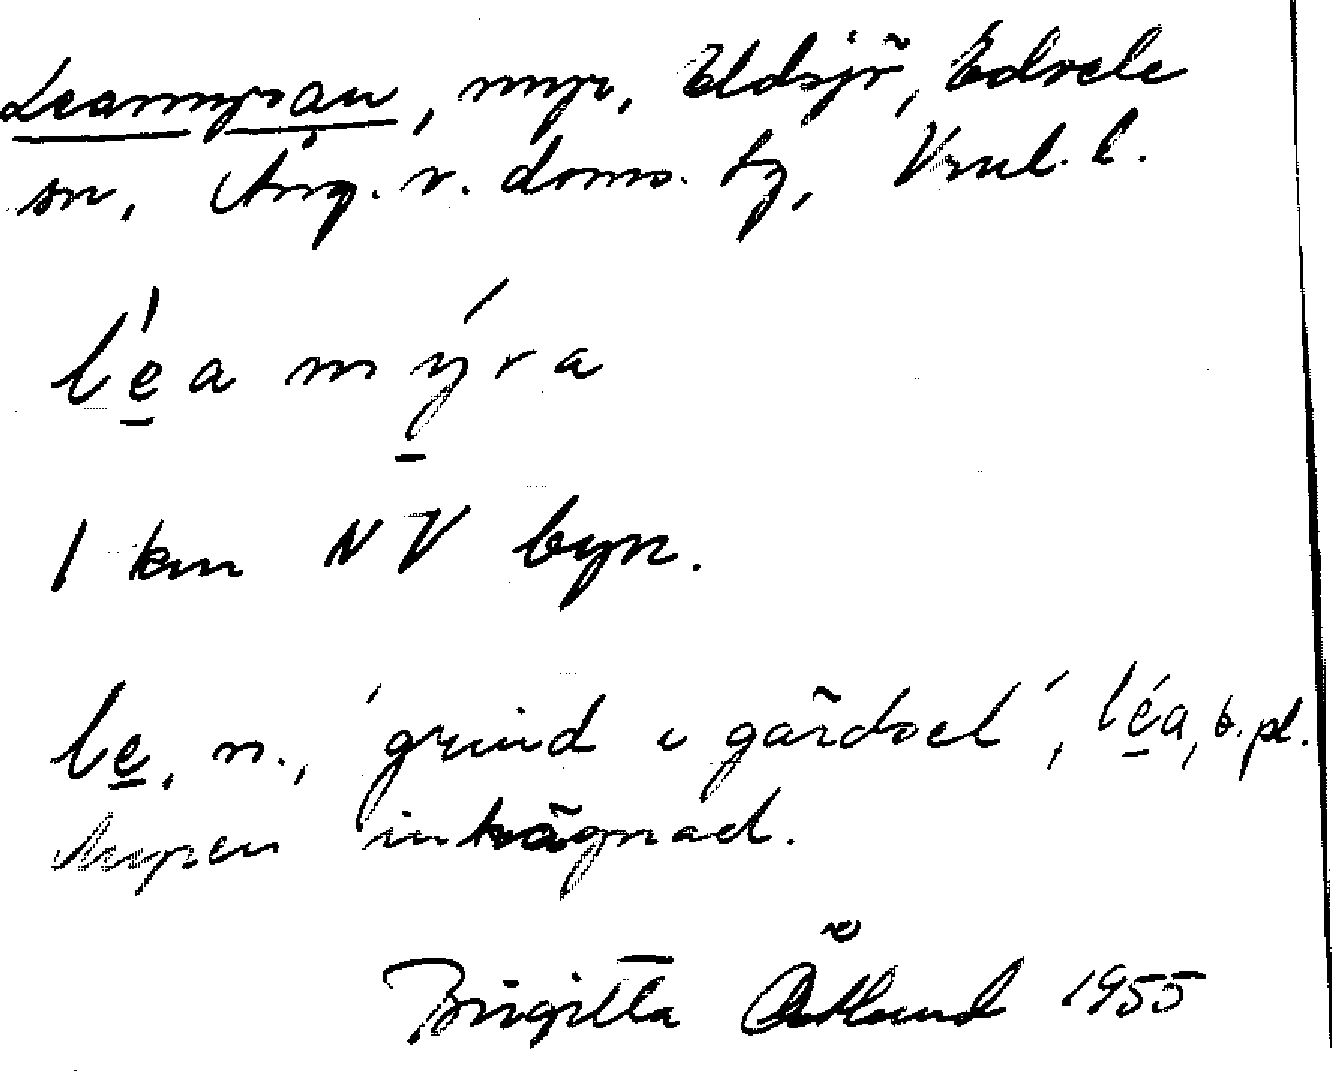 Leamyran, myr, Eldsjö, Edsele
sn, Ång. v. doms. tg, Vnrl. l.
léa mýra
1 km NV byn.
le, n., 'grind i gärdsel', léa, b. pl.
Myren inhägnad.
Birgitta Åslund 1955